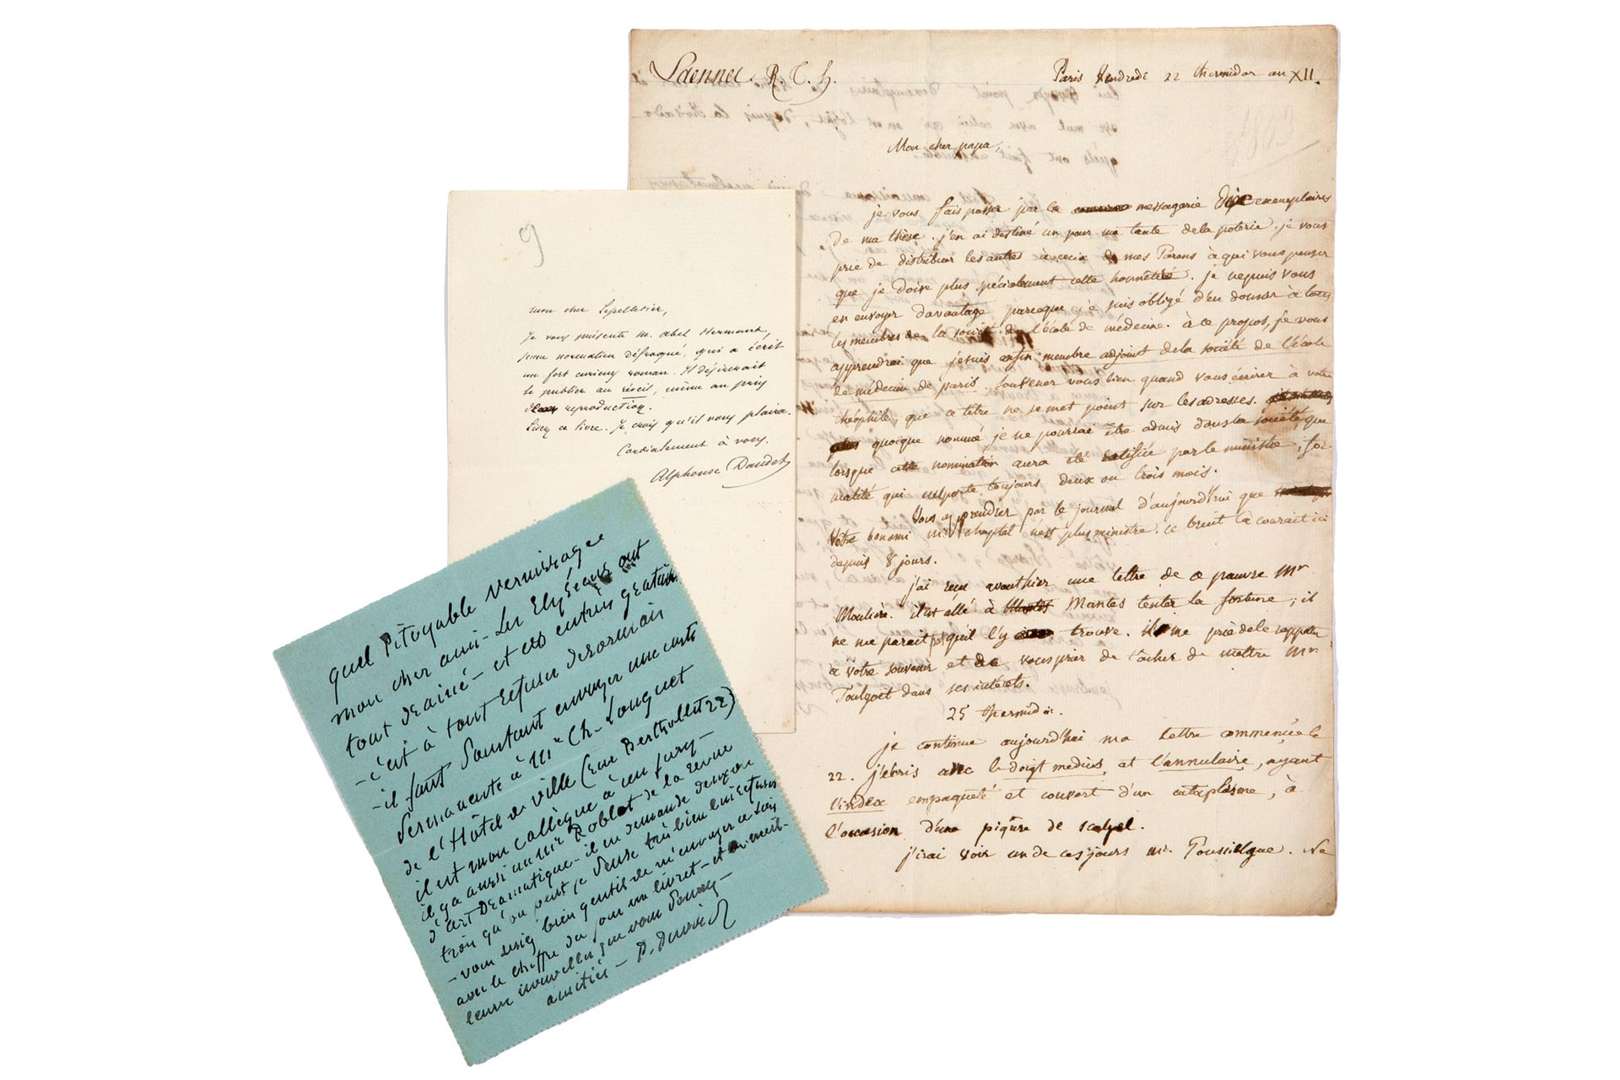 Laennec. R. T. h.
Paris Vendredi 22 thermidor an XII.
1803
Mon cher papa,
je vous fais passer par la messagerie dix exemplaires
de ma thèse. j'en ai destiné un pour ma tante de la poterie. je vous
prie de distribuer les autres à ceux de mes Parens à qui vous penser
que je doive plus spécialement cette honnêteté. je ne puis vous
en envoyer davantage parceque je suis obligé d'en donner à tous
les membres de la société de l'école de médecine. à ce propos, je vous
apprendrai que je suis enfin membre adjoint de la société de l'école
de médecine de paris. Souvenez vous bien quand vous écrirez à votre
théophile, que ce titre ne se met point sur les adresses.
quoique nommé je ne pourrai être admis dans la société que
lorsque cette nomination aura été ratifiée par le ministre, for-
malité qui emporte toujours deux ou trois mois.
Vous apprendrez par le journal d'aujourd'hui que
Votre bon ami mr chaptal n'est plus ministre. ce bruit la courait ici
depuis 8 jours.
j'ai reçu avanthier une lettre de ce pauvre Mr
Moulière. il est allé à Mantes tenter la fortune ; il
ne me parait pas qu'il l'y trouve. il me prie de le rappeler
à votre souvenir et de vous prier de tâcher de mettre Mr
Toulgoet dans ses intérêts.
25 thermidor.
je continue aujourd'hui ma lettre commencée le
22. j'écris avec le doigt medius, et l'annulaire, ayant
l'index empaqueté et couvert d'un cataplasme, à
l'occasion d'une piqûre de scalpel.
j'irai voir un de ces jours mr. Poussielgue. Ne
9
mon cher Lepelletier,
Je vous présente M. Abel Hermant,
jeune normalien défroqué, qui a écrit
un fort curieux roman. Il désirerait
le publier au récit, même au prix
de reproduction.
Lisez ce livre. Je crois qu'il vous plaira.
Cordialement à vous.
Alphonse Daudet
quel Pitoyable vernissage
mon cher ami - Les Elyséens ont
tout drainé - et ces entrées gratuites
- c'est à tout refuser désormais
- il faut pourtant envoyer une carte
permanente à Mr Ch. Longuet
de l'Hôtel de ville (rue Berthollet 22)
il est mon collègue à un jury -
il y a aussi un Mr Roblot de la revue
d'art Dramatique - il en demande deux
trois qu'on peut je pense très bien lui refuser
- vous seriez bien gentil de m'envoyer ce soir
avec le chiffre du jour un livret - et
leurs nouvelles que vous pensez -
amitiés -